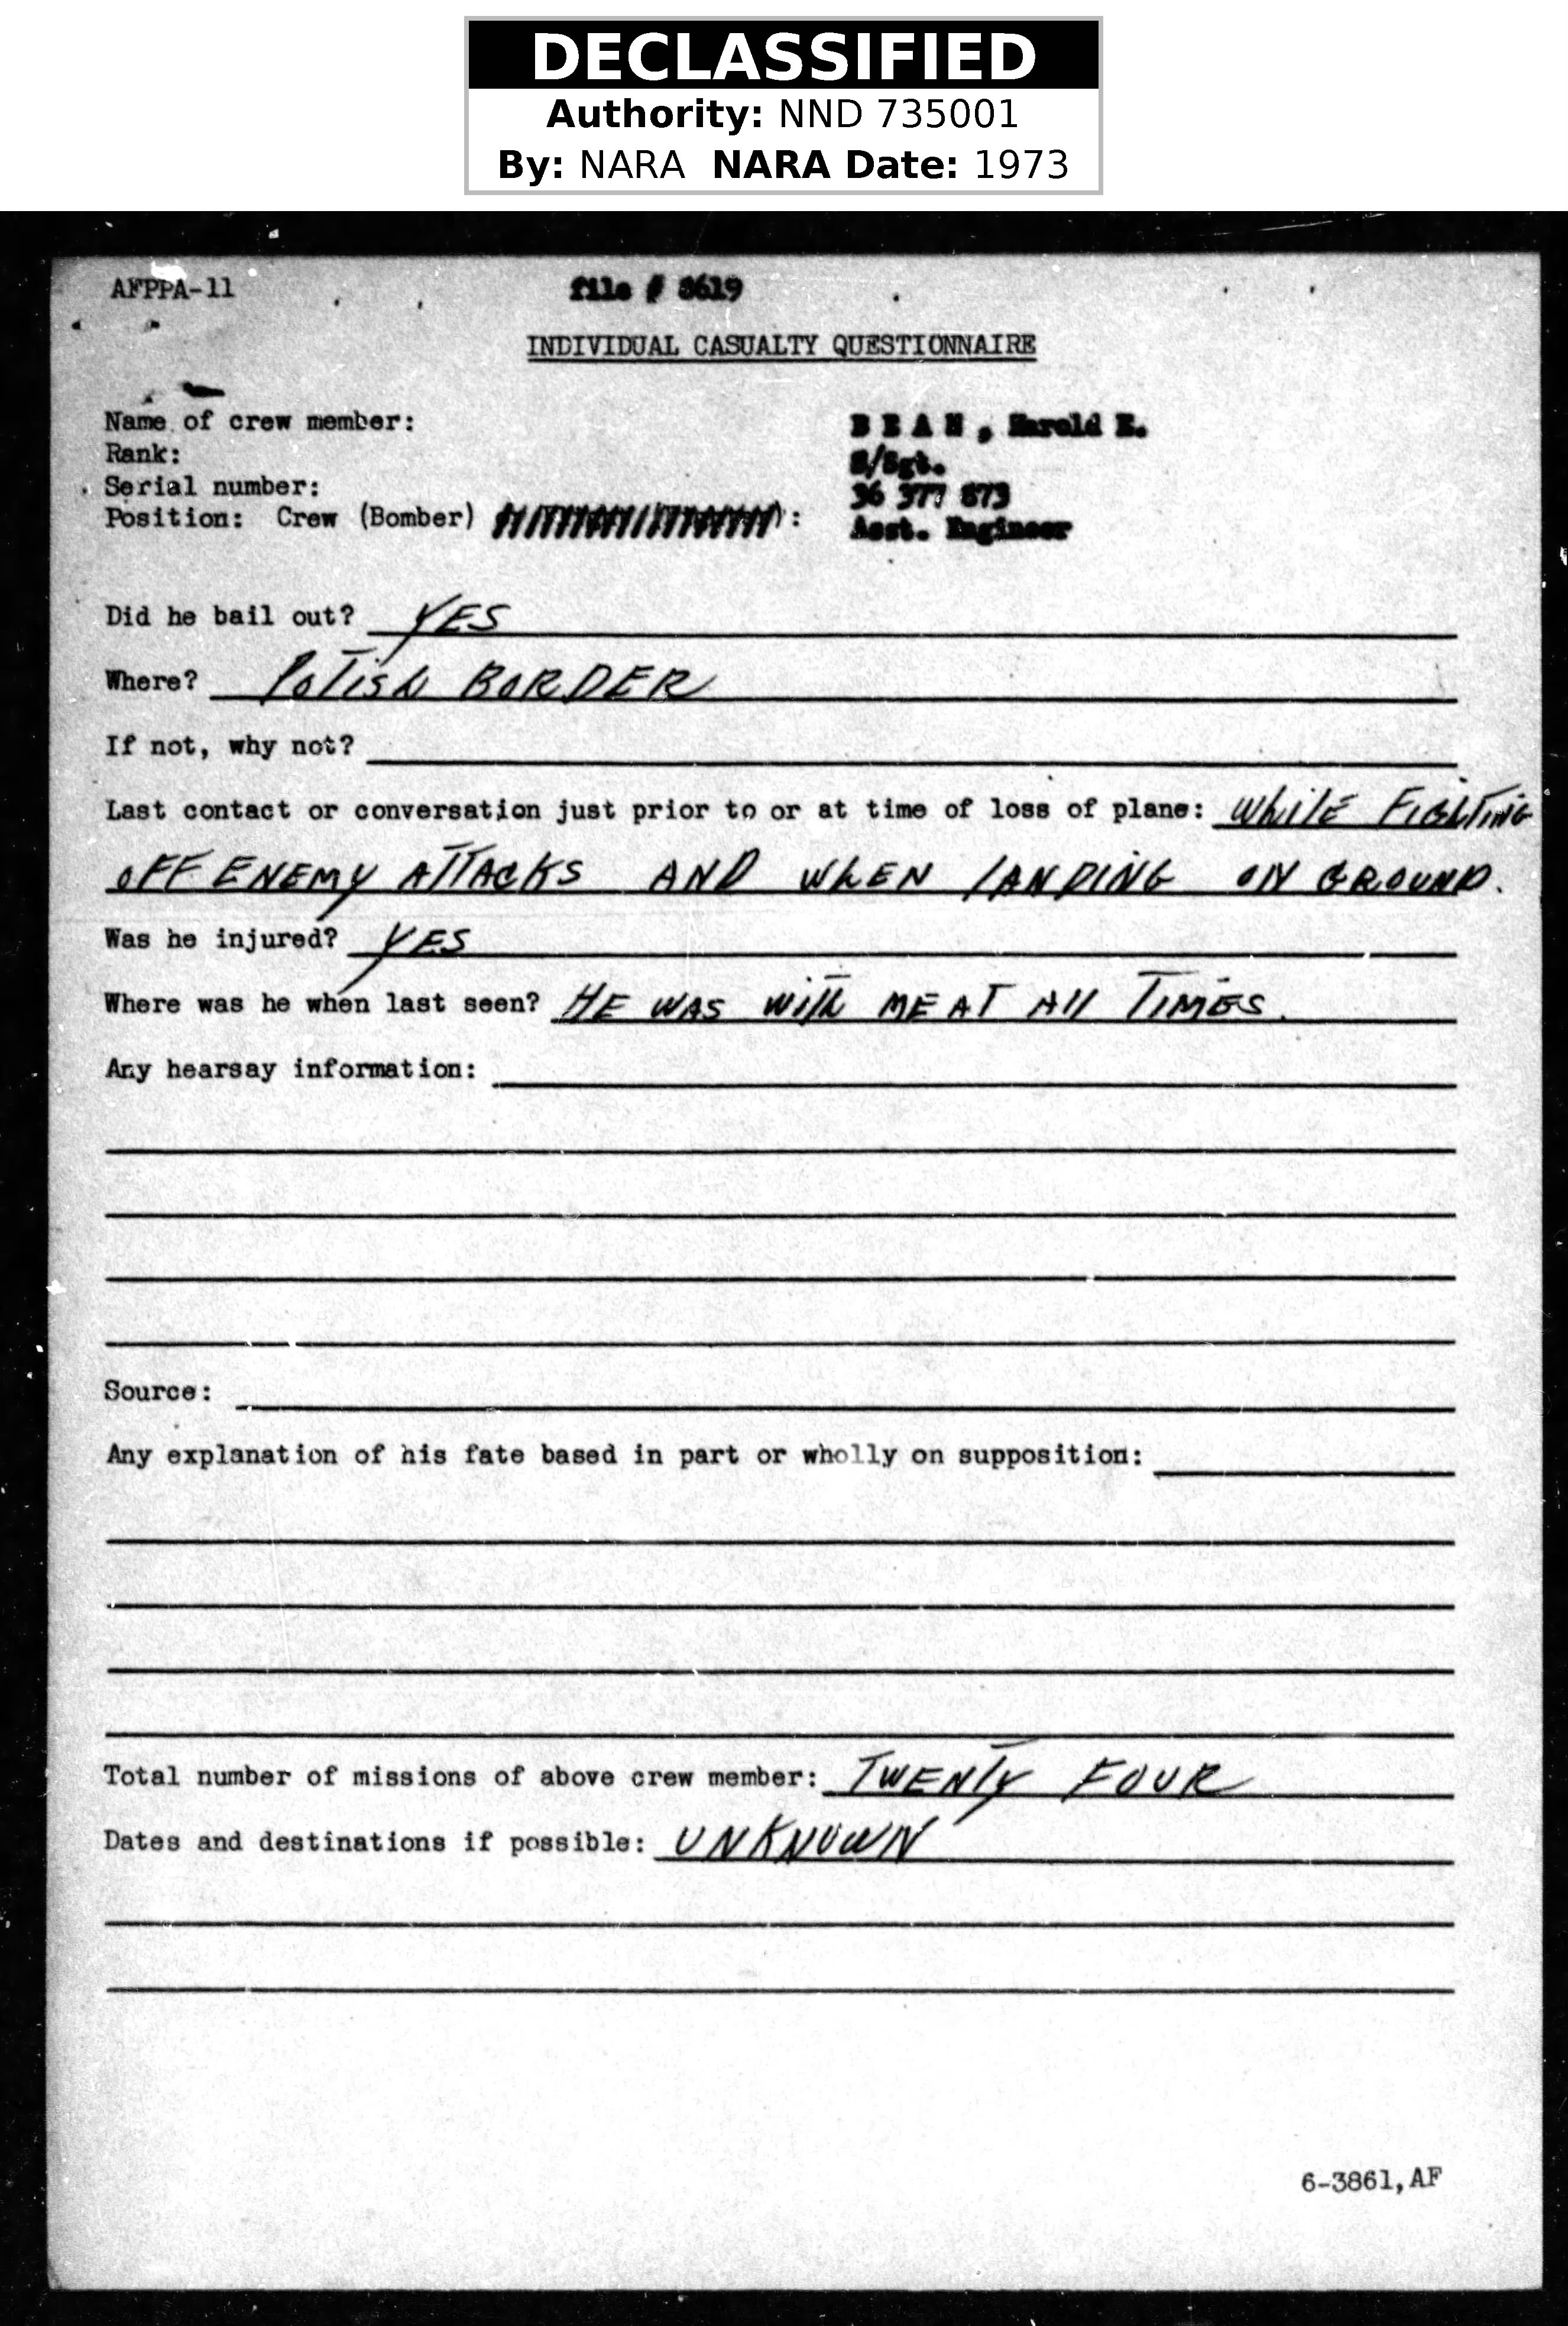 DECLASSIFIED
Authority: NND 735001
By: NARA NARA Date: 1973
AFPPA-11
file # 8619
INDIVIDUAL CASUALTY QUESTIONNAIRE
Name of crew member: B E A N , Harold E.
Rank: S/Sgt.
Serial number: 36 377 873
Position: Crew (Bomber) : Asst. Engineer
Did he bail out? YES
Where? Polish BORDER
If not, why not?
Last contact or conversation just prior to or at time of loss of plane: While FIGHTING
OFF ENEMY ATTACKS AND WHEN LANDING ON GROUND.
Was he injured? YES
Where was he when last seen? HE WAS WITH ME AT All TIMES.
Any hearsay information:
Source:
Any explanation of his fate based in part or wholly on supposition:
Total number of missions of above crew member: TWENTY FOUR
Dates and destinations if possible: UNKNOWN
6-3861,AF